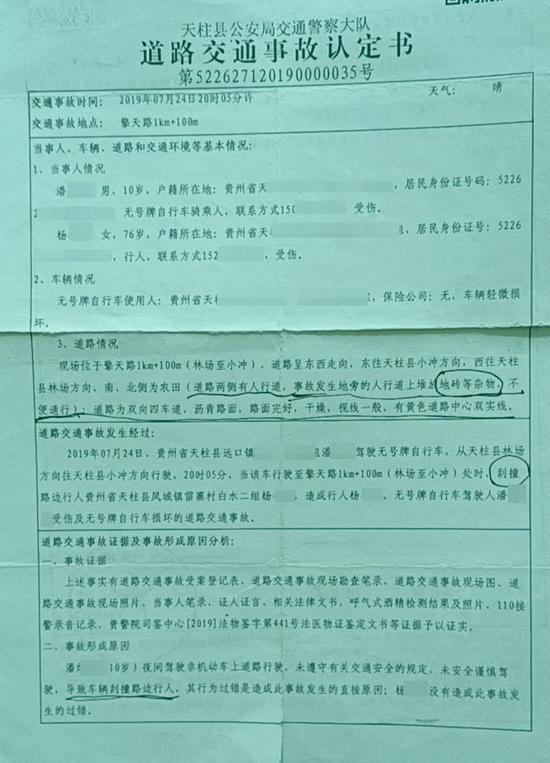 天柱县公安局交通警察大队
道路交通事故认定书
第522627120190000035号
交通事故时间： 2019年07月24日20时05分许 天气： 晴
交通事故地点： 擎天路1km+100m
当事人、车辆、道路和交通环境等基本情况：
1、当事人情况
潘 男，10岁，户籍所在地：贵州省天 ，居民身份证号码：5226
2 无号牌自行车骑乘人，联系方式150 受伤。
杨 女，76岁，户籍所在地：贵州省天 组，居民身份证号：5226
，行人，联系方式152 ，受伤。
2、车辆情况
无号牌自行车使用人：贵州省天 ，保险公司：无，车辆轻微损
坏。
3、道路情况
现场位于擎天路1km+100m（林场至小冲），道路呈东西走向，东往天柱县小冲方向，西往天柱
县林场方向，南、北侧为农田（道路两侧有人行道，事故发生地旁的人行道上堆放地砖等杂物，不
便通行），道路为双向四车道，沥青路面，路面完好，干燥，视线一般，有黄色道路中心双实线。
道路交通事故发生经过：
2019年07月24日，贵州省天柱县远口镇 组潘 驾驶无号牌自行车，从天柱县林场
方向往天柱县小冲方向行驶，20时05分，当该车行驶至擎天路1km+100m（林场至小冲）处时，刮撞
路边行人贵州省天柱县凤城镇雷寨村白水二组杨 ，造成行人杨 、无号牌自行车驾驶人潘
受伤及无号牌自行车损坏的道路交通事故。
道路交通事故证据及事故形成原因分析：
一、事故证据
上述事实有道路交通事故受案登记表、道路交通事故现场勘查笔录、道路交通事故现场图、道
路交通事故现场照片、当事人笔录、证人证言、相关法律文书、呼气式酒精检测结果及照片、110接
警录音记录、贵警院司鉴中心[2019]法物鉴字第441号法医物证鉴定文书等证据予以证实。
二、事故形成原因
潘 10岁）夜间驾驶非机动车上道路行驶，未遵守有关交通安全的规定，未安全谨慎驾
驶，导致车辆刮撞路边行人，其行为过错是造成此事故发生的直接原因；杨 没有造成此事故发
生的过错。